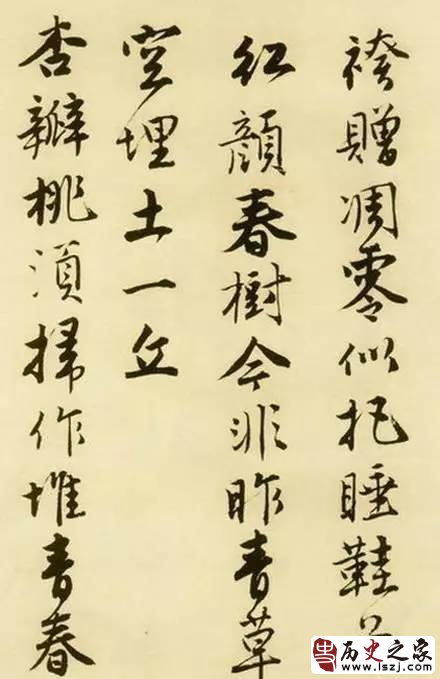 袴贈凋零似把睡鞋
紅顏春樹今非昨青草
空埋土一丘
杏瓣桃須掃作堆青春
历史之家
www.lszj.com